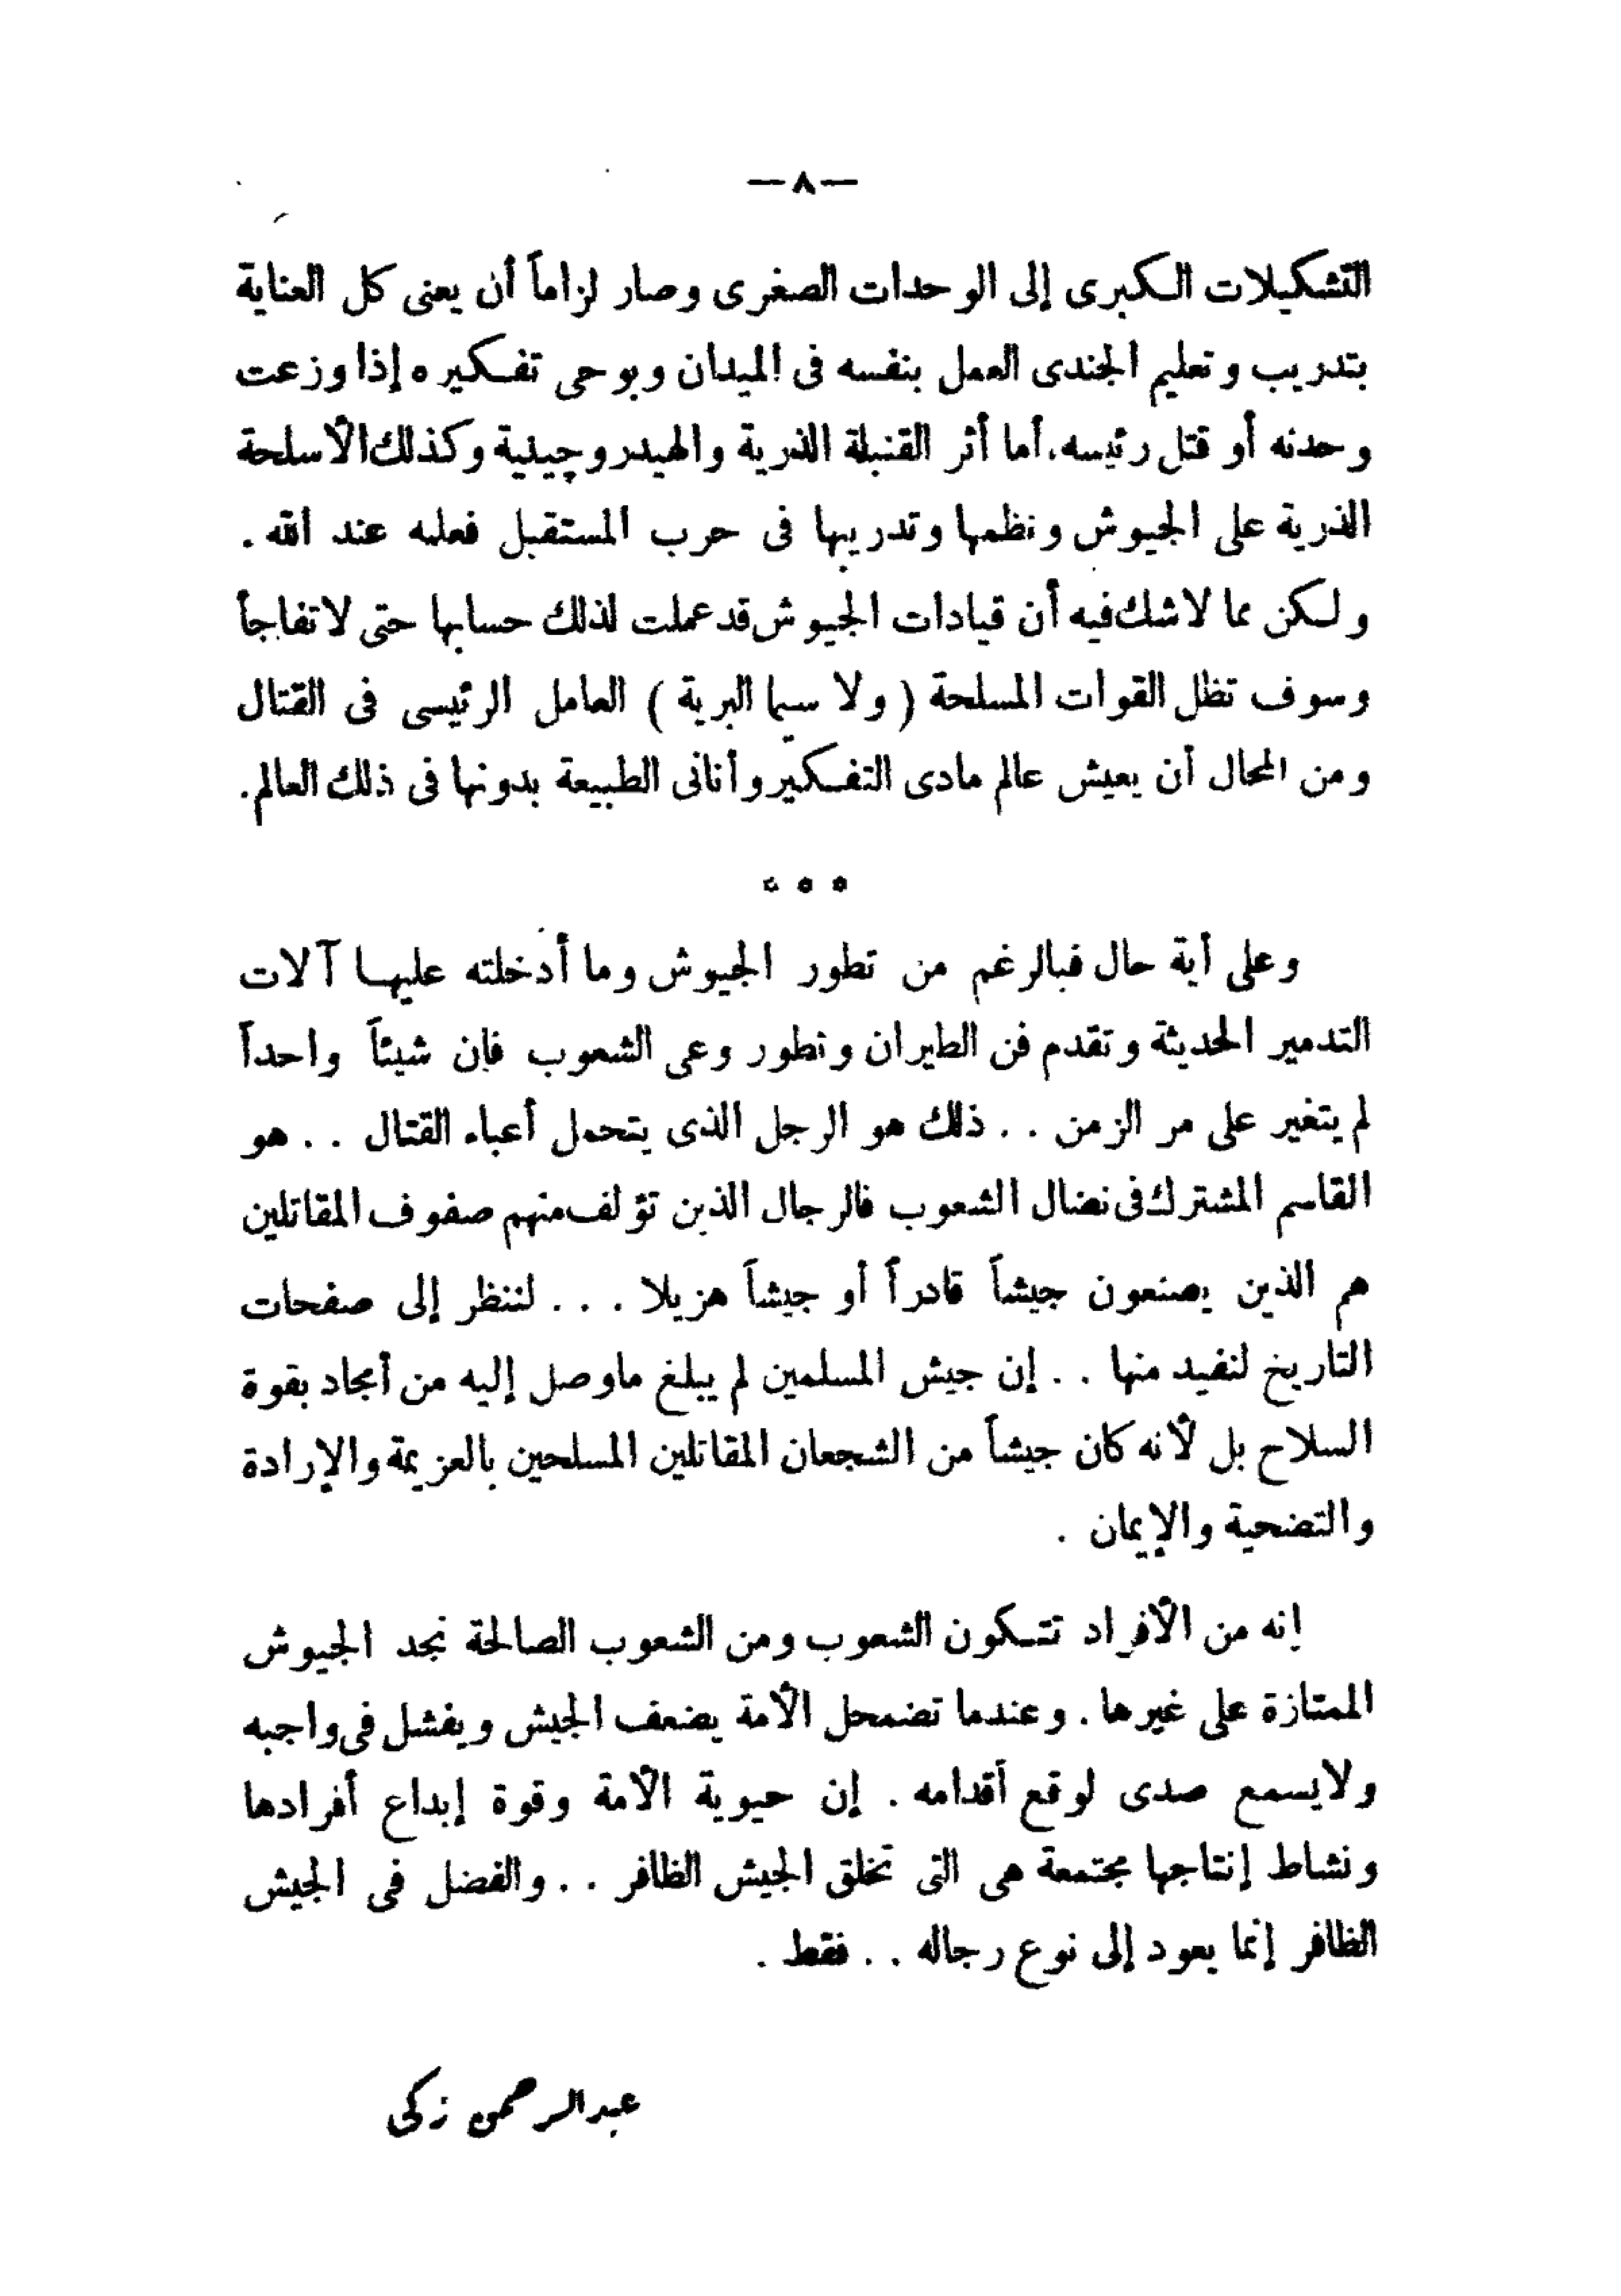 —٨—
التشكيلات الكبرى إلى الوحدات الصغرى وصار لزاماً أن يعنى كل العناية
بتدريب وتعليم الجندى العمل بنفسه فى الميدان وبوحى تفكيره إذا وزعت
وحدته أو قتل رئيسه. أما أثر القنبلة الذرية والهيدروچينية وكذلك الأسلحة
الذرية على الجيوش ونظمها وتدريبها فى حرب المستقبل فعلمه عند الله .
ولكن مما لاشك فيه أن قيادات الجيوش قد عملت لذلك حسابها حتى لا تفاجأ
وسوف تظل القوات المسلحة ( ولا سيما البرية ) العامل الرئيسى فى القتال
ومن المحال أن يعيش عالم مادى التفكير وأنانى الطبيعة بدونها فى ذلك العالم.
* * *
وعلى أية حال فبالرغم من تطور الجيوش وما أدخلته عليها آلات
التدمير الحديثة وتقدم فن الطيران وتطور وعى الشعوب فإن شيئاً واحداً
لم يتغير على مر الزمن . . ذلك هو الرجل الذى يتحمل أعباء القتال . . هو
القاسم المشترك فى نضال الشعوب فالرجال الذين تؤلف منهم صفوف المقاتلين
هم الذين يصنعون جيشاً قادراً أو جيشاً هزيلا . . . لننظر إلى صفحات
التاريخ لنفيد منها . . إن جيش المسلمين لم يبلغ ماوصل إليه من أمجاد بقوة
السلاح بل لأنه كان جيشاً من الشجعان المقاتلين المسلحين بالعزيمة والإرادة
والتضحية والإيمان .
إنه من الأفراد تتكون الشعوب ومن الشعوب الصالحة نجد الجيوش
الممتازة على غيرها . وعندما تضمحل الأمة يضعف الجيش ويفشل فى واجبه
ولايسمع صدى لوقع أقدامه . إن حيوية الأمة وقوة إبداع أفرادها
ونشاط إنتاجها مجتمعة هى التى تخلق الجيش الظافر . . والفضل فى الجيش
الظافر إنما يعود إلى نوع رجاله . . فقط .
عبد الرحمن زكى